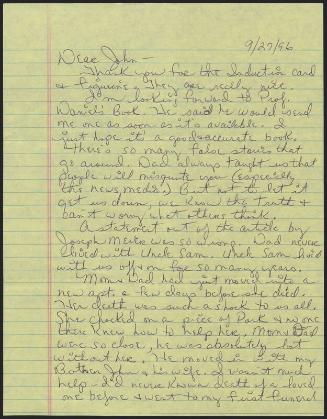 9/27/96
Dear John -
Thank you for the Induction card
& figurine. They are really nice.
I'm looking forward to Prof.
Daniel's Book. He said he would send
me one as soon as it's available. I
just hope it's a good accurate book.
There's so many false stories that
go around. Dad always taught us that
people will misquote you (especially
the news media.) But not to let it
get us down, we know the truth &
can't worry what others think.
A statement out of the article by
Joseph was so wrong. Dad never
lived with Uncle Sam. Uncle Sam lived
with us off & on for so many years.
Mom & Dad had just moved into a
new apt. a few days before she died.
Her death was such a shock to us all.
She choked on a piece of Pork & no one
there knew how to help her. Mom & Dad
were so close, he was absolutely lost
without her. He moved in with my
Brother John & his wife. I wasn't much
help - I'd never known death of a loved
one before & went to my first funeral